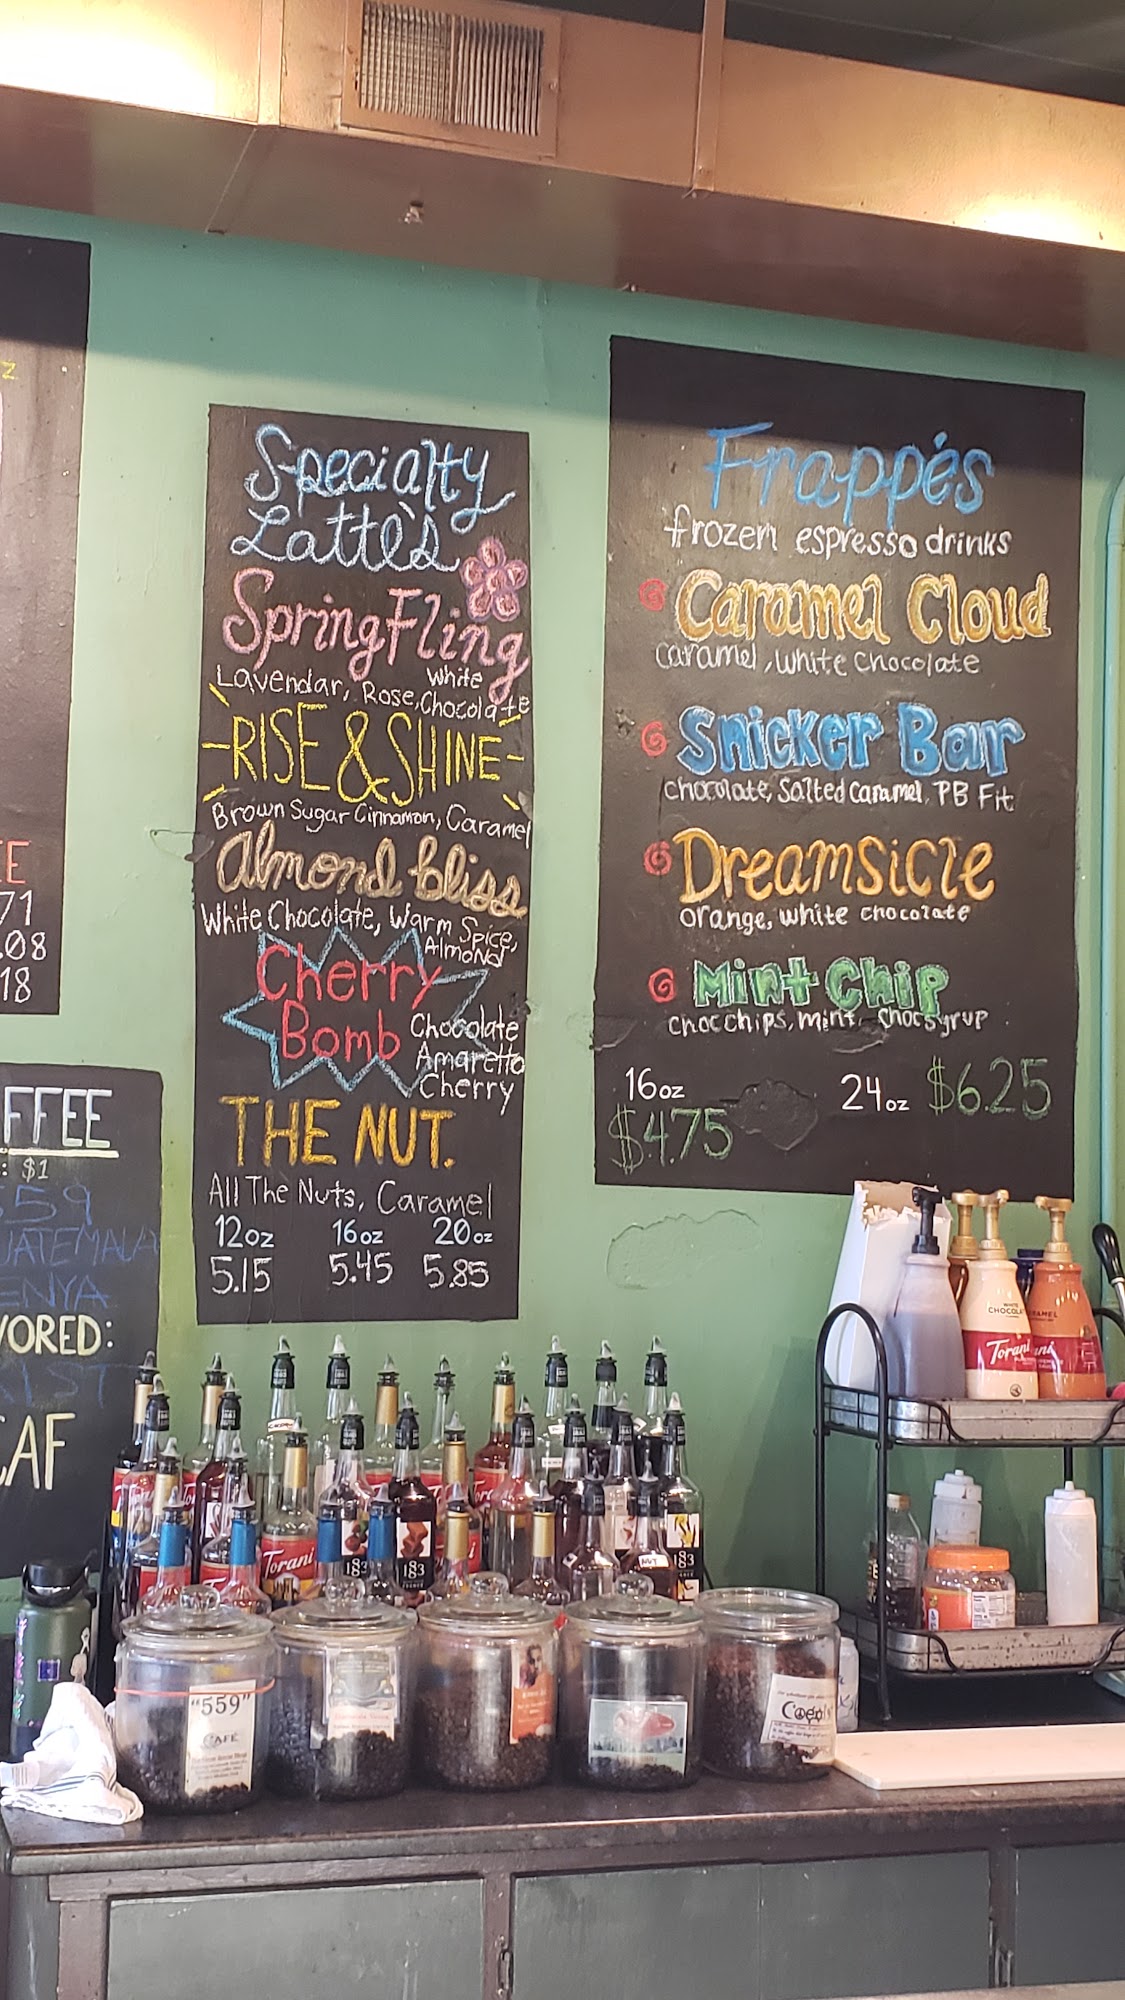 Specialty
Latte's
Spring Fling
Lavendar, Rose, White Chocolate
-RISE & SHINE-
Brown Sugar Cinnamon, Caramel
Almond bliss
White Chocolate, Warm Spice,
Almond
Cherry
Bomb
Chocolate
Amaretto
Cherry
THE NUT.
All The Nuts, Caramel
12oz 16oz 20oz
5.15 5.45 5.85
Frappés
frozen espresso drinks
Caramel Cloud
caramel, white chocolate
Snicker Bar
chocolate, Salted Caramel, PB Fit
Dreamsicle
orange, white chocolate
Mint Chip
choc chips, mint, choc syrup
16oz 24oz $6.25
$4.75
Z
E
71
.08
18
FFEE
: $1
559
UATEMALA
ENYA
VORED:
AF
WHITE
CHOCOLA
Torani
ani
AMEL
Torani
1883
1883
1883
NUT
"559"
CAFÉ